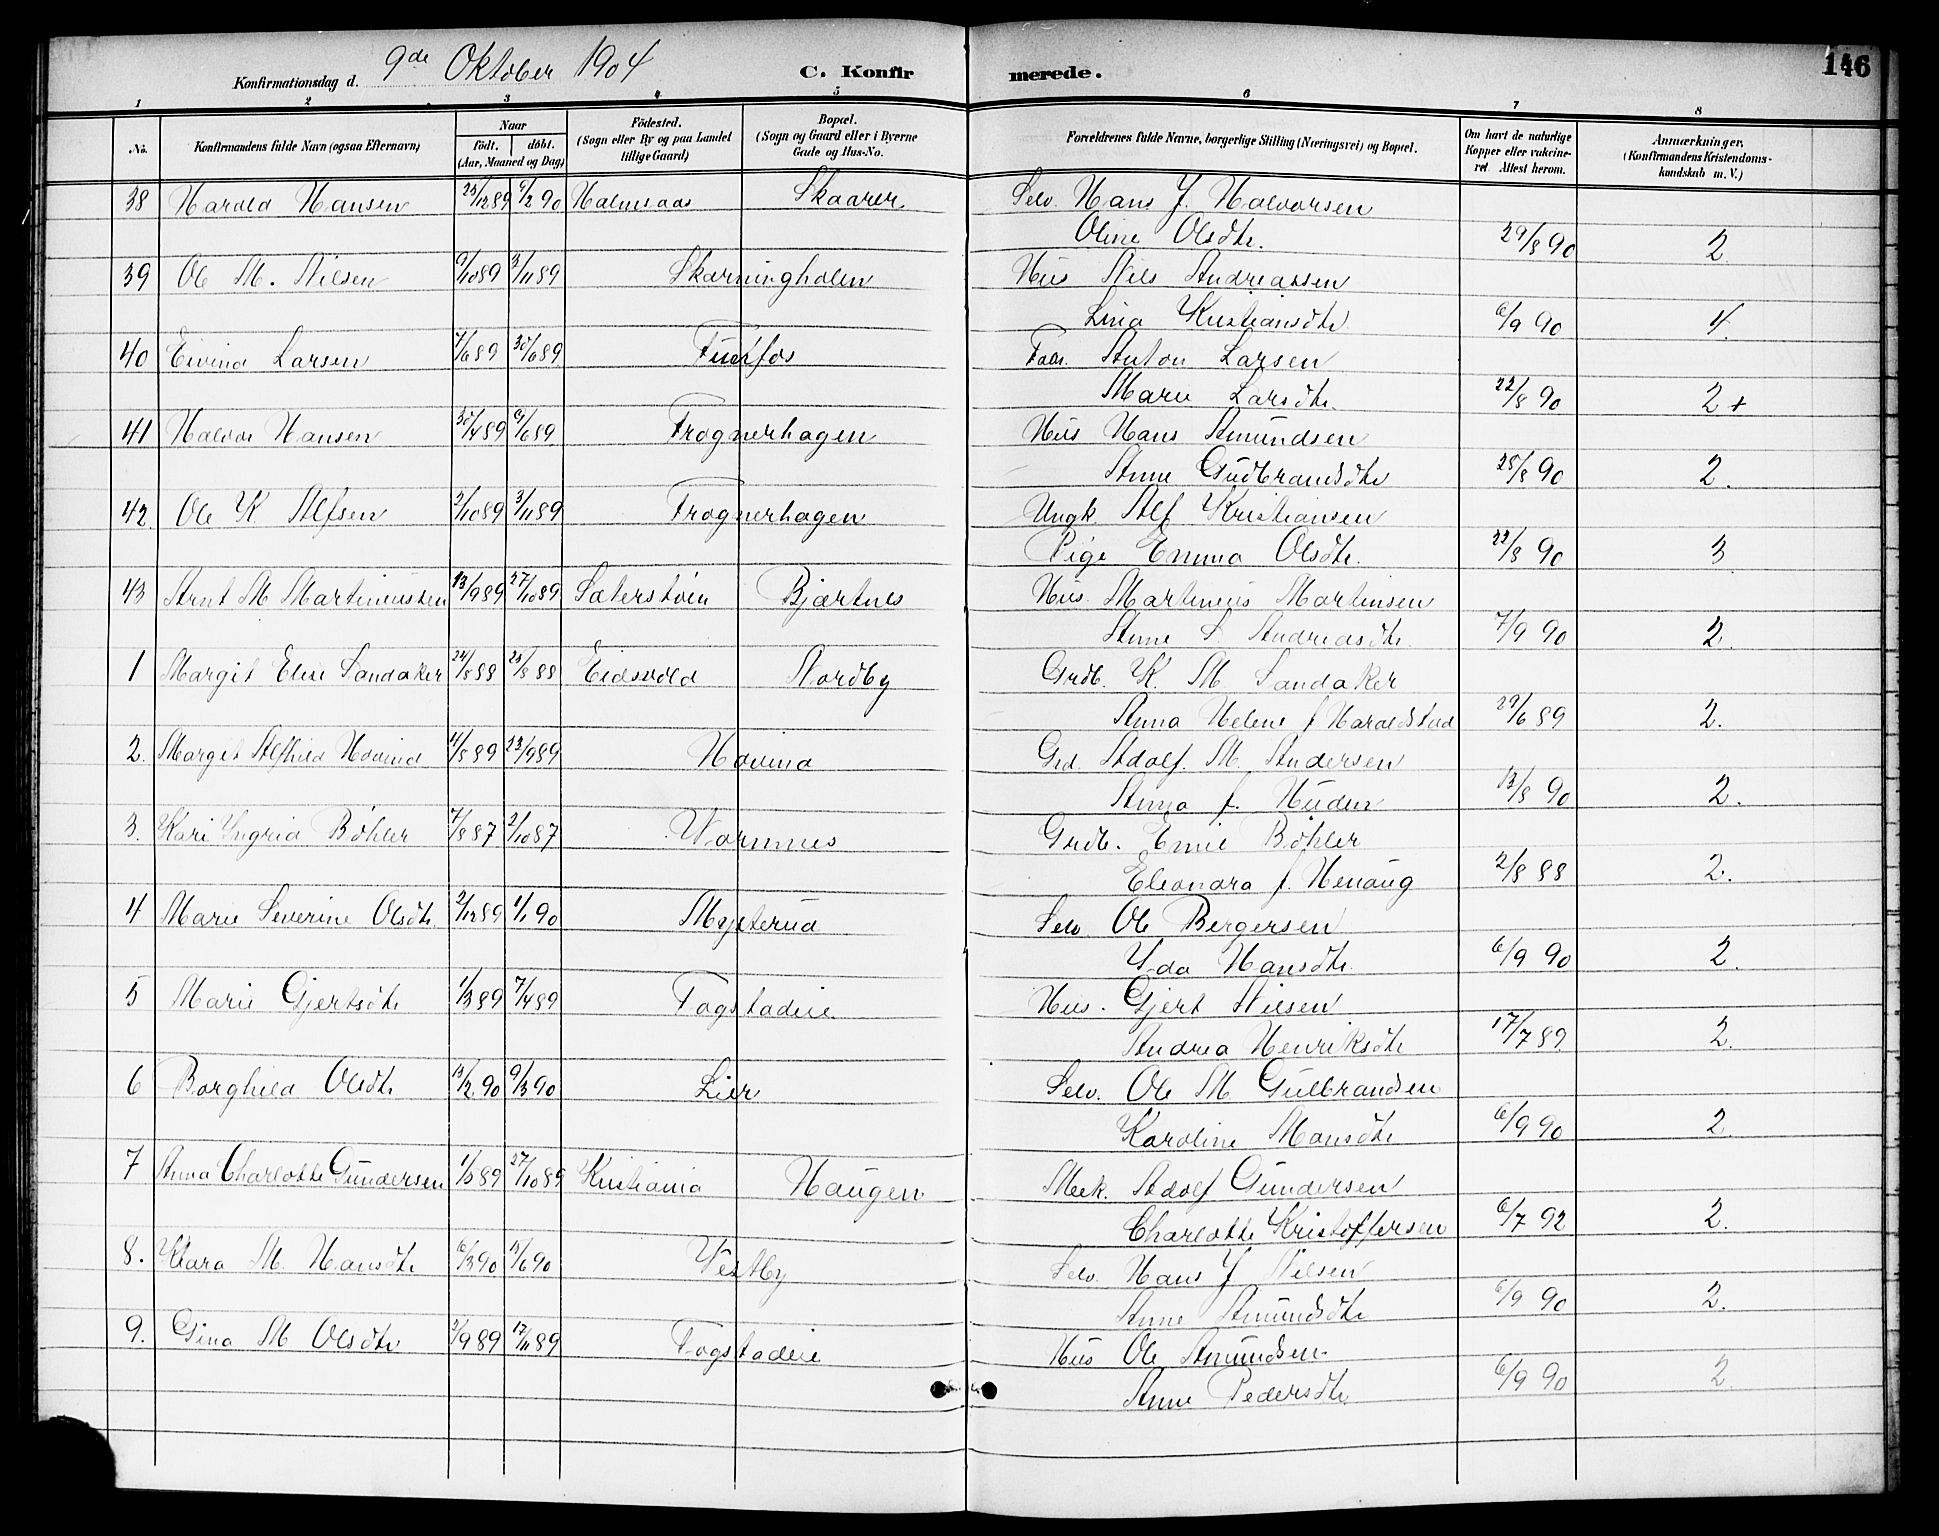 Konfirmationsdag d. 9de Oktober 1904 C. Konfirmerede. 146
1 2 3 4 5 6 7 8
No. Konfirmandens fulde Navn (ogsaa Efternavn) Naar født. døbt. (Aar, Maaned og Dag) Fødested. (Sogn eller By og paa Landet tillige Gaard) Bopæl. (Sogn og Gaard eller i Byerne Gade og Hus-No. Forældrenes fulde Navne, borgerlige Stilling (Næringsvei) og Bopæl. Om havt de naturlige Kopper eller vakcineret. Attest herom. Anmærkninger. (Konfirmandens Kristendomskundskab m. V.)
38 Harald Hansen 25/12 89 9/2 90 Holmsaas Skaarer Selv. Hans J. Halvorsen
Oline Olsdtr. 29/8 90 2
39 Ole M. Nilsen 9/10 89 3/11 89 Skarningholen Hus Nils Andreassen
Lina Kristiansdtr. 6/9 90 4.
40 Eivind Larsen 7/6 89 30/6 89 Funfos Fabr. Anton Larsen
Marie Larsdtr. 22/8 90 2+
41 Halvor Hansen 30/4 89 9/6 89 Frognerhagen Hus Hans Amundsen
Anne Gudbrandsdtr 25/8 90 2.
42 Ole K Alfsen 2/10 89 3/11 89 Frognerhagen Ungk. Alf Kristiansen
Pige Emma Olsdtr. 22/8 90 3
43 Arnt M Martiniussen 13/9 89 27/10 89 Sæterstøen Bjertnes Hus. Martinius Martinsen
Anne S Andreasdtr. 7/9 90 2.
1 Margit Elise Sandaker 24/8 88 Eidsvold Nordby Grdb. K. M. Sandaker
Anna Helene f Haraldstad 29/6 89 2.
2. Margit Alfhild Hovind 11/8 89 22/9 89 Hovind Grd. Adolf. M. Andersen
Anna f. Huden 13/8 90 2.
3. Kari Yngrid Bøhler 7/8 87 2/10 87 Wormnes Grdb. Emil Bøhler
Eleonora f. Henaug 2/8 88 2.
4 Marie Severine Olsdtr. 2/12 89 1/1 90 Mysterud Selv. Ole Bergersen
Yda Hansdtr. 6/9 90 2.
5 Marie Gjertsdtr 1/3 89 7/4 89 Fogstadeie Hus. Gjert Nilsen
Andrea Henriksdtr 17/7 89. 2.
6 Borghild Olsdtr 13/2 90 9/3 90 Lier Selv. Ole M. Gulbrandsen
Karoline Mansdtr 6/9 90 2.
7 Anna Charlotte Gundersen 27/10 89 Kristiania Haugen Mek. Adolf Gundersen
Charlotte Kristoffersen 6/7 92 2.
8. Klara M. Hansdtr 6/3 90 15/6 90 Vestby Selv. Hans J Nilsen
Anne Amundsdtr 6/9 90 2.
9. Gina M Olsdtr 2/9 89 17/11 89 Fogstadeie Hus Ole Amundsen.
Anne Pedersdtr. 6/9 90 2